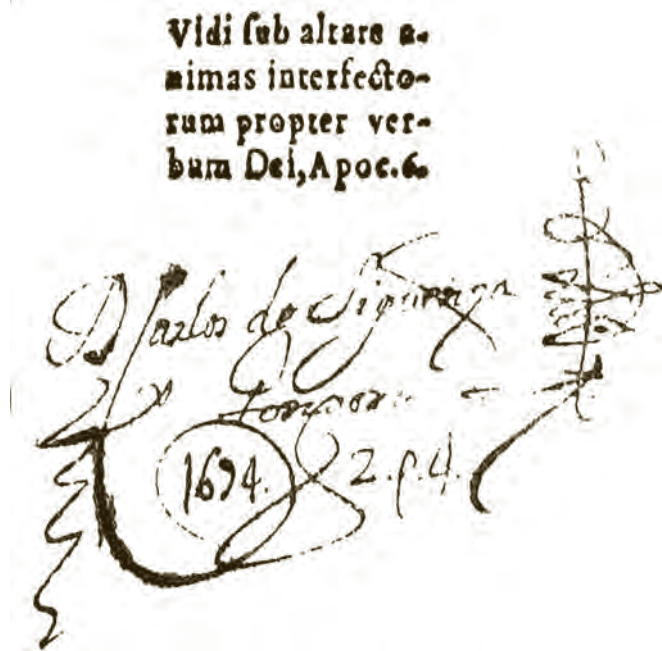 Vidi ſub altare a-
nimas interfecto-
rum propter ver-
bum Dei, Apoc. 6.
D Carlos de Siguenza
y Gongora
1694. 2. p. 4.